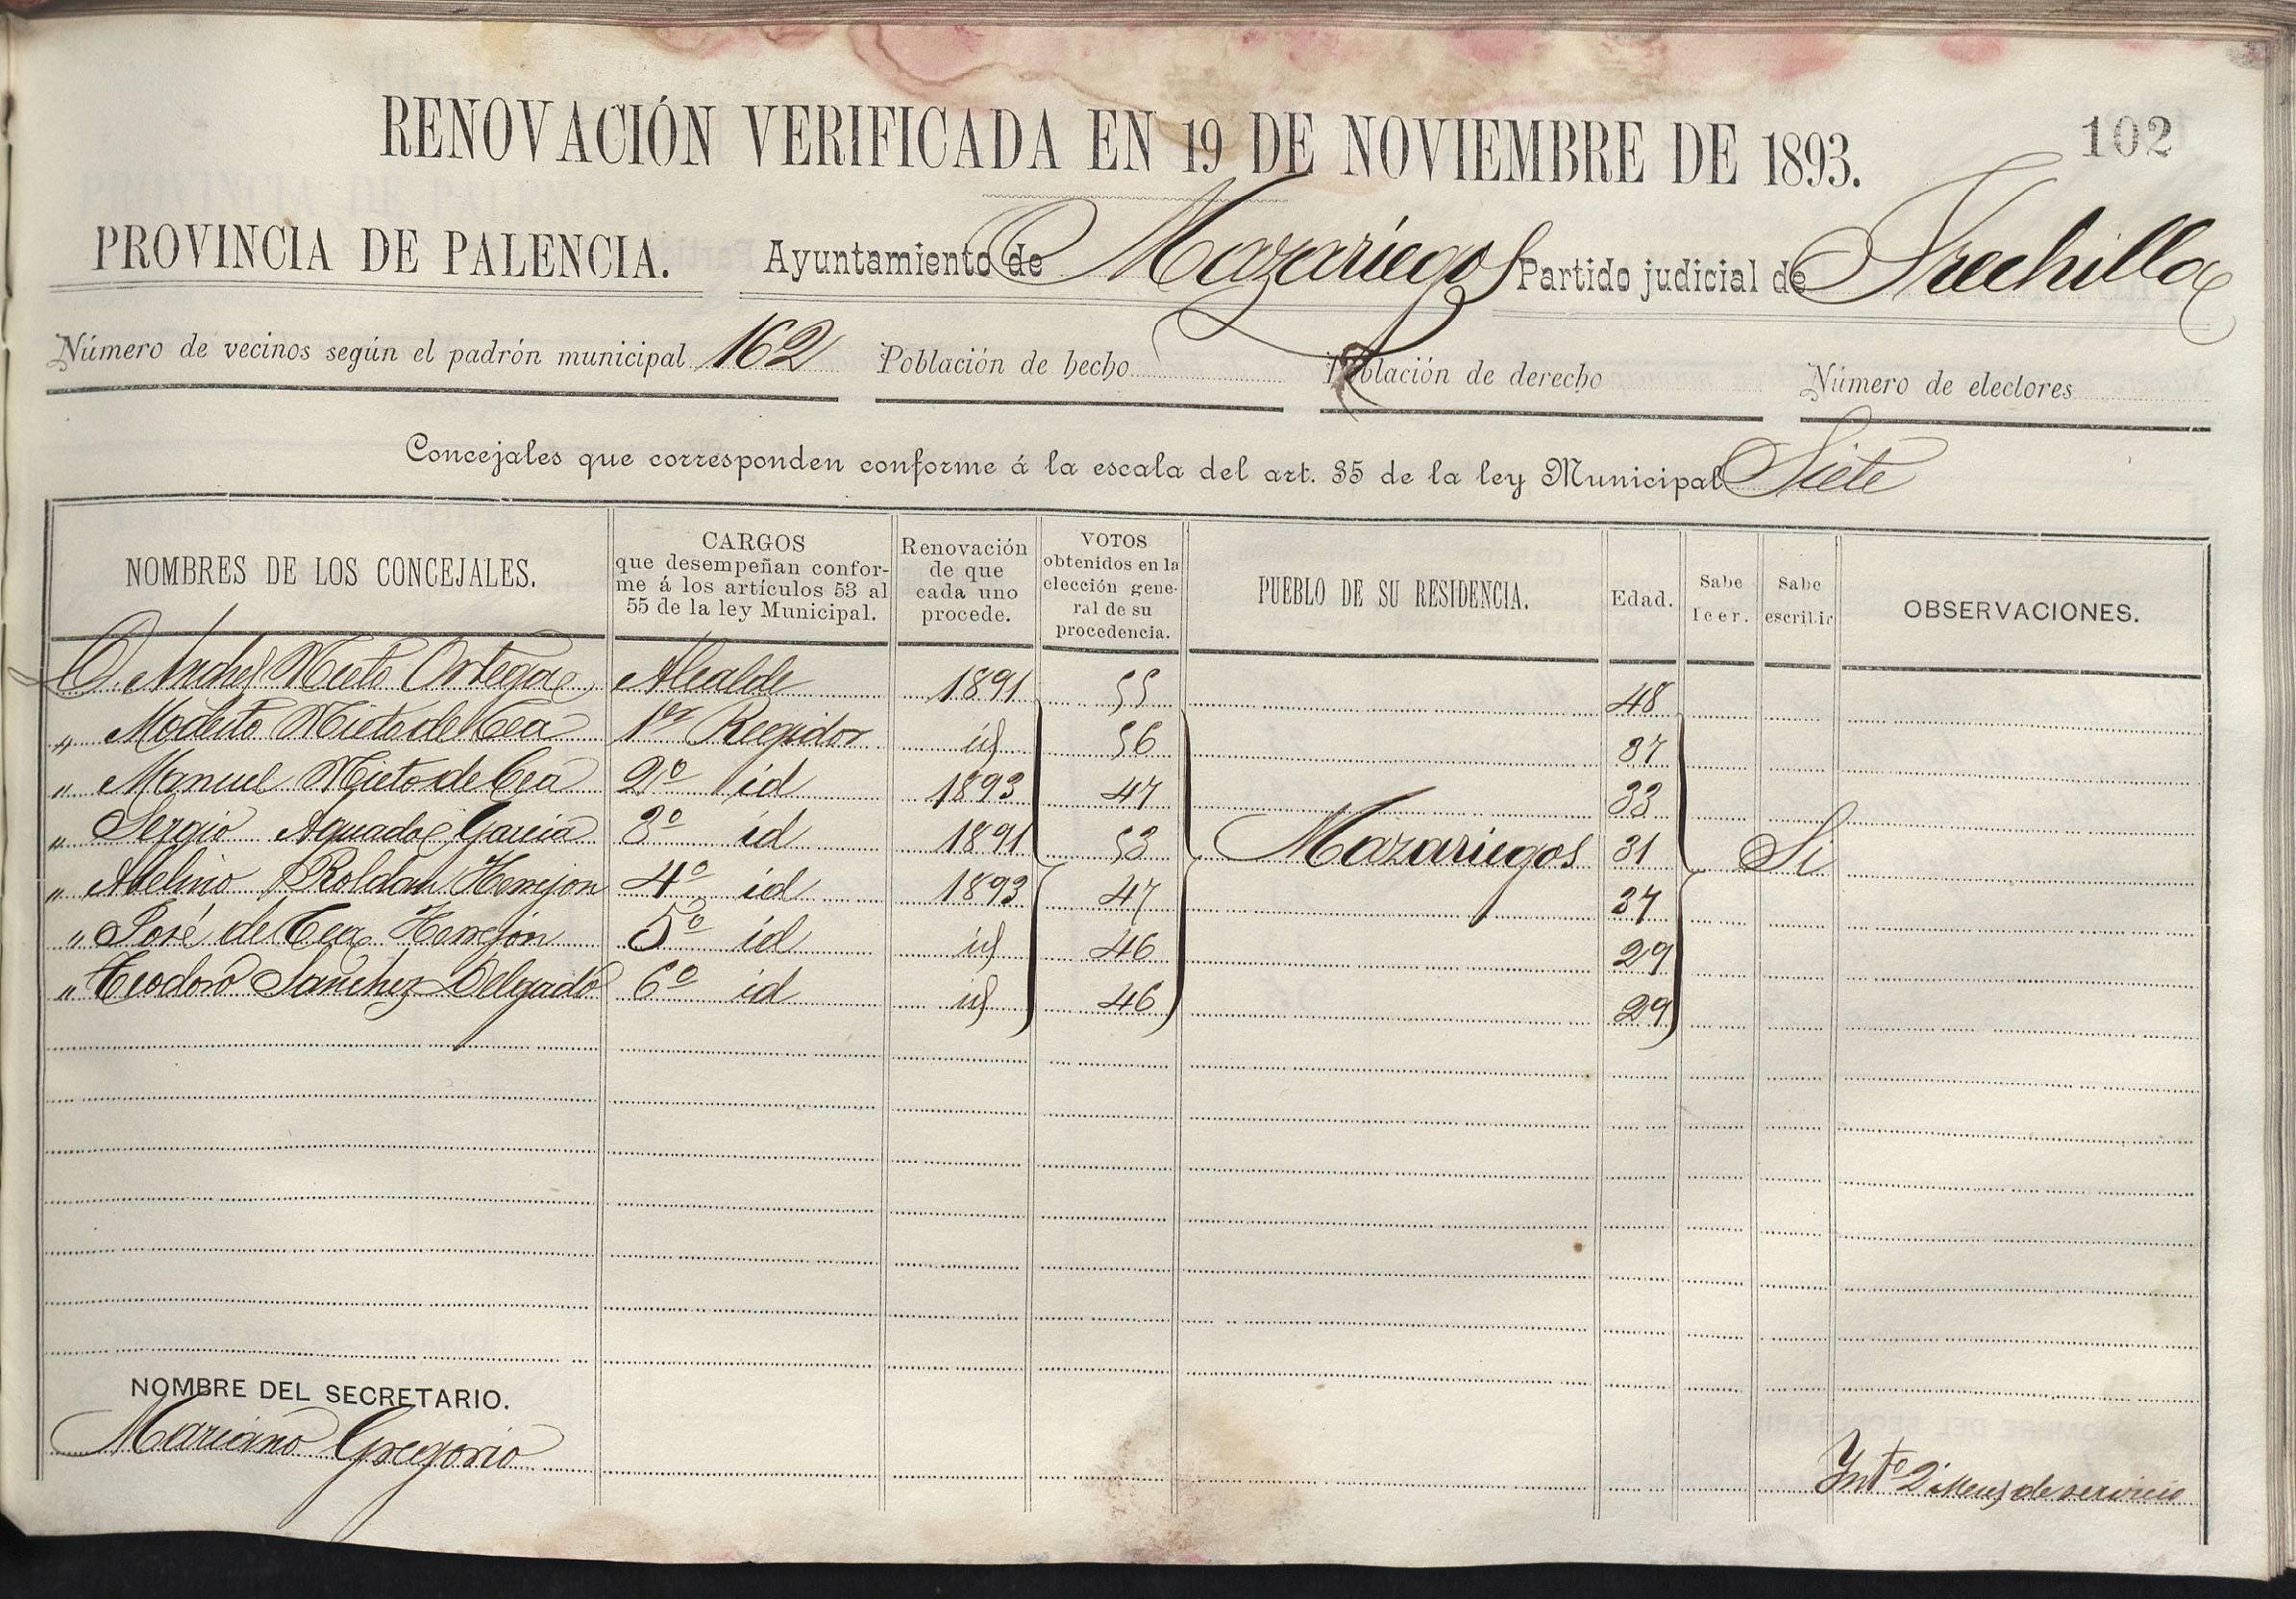 RENOVACIÓN VERIFICADA EN 19 DE NOVIEMBRE DE 1893.
102
PROVINCIA DE PALENCIA. Ayuntamiento de Mazariegos Partido judicial de Frechilla
Número de vecinos según el padrón municipal 162 Población de hecho Población de derecho Número de electores
Concejales que corresponden conforme á la escala del art. 35 de la ley Municipal Siete
NOMBRES DE LOS CONCEJALES. CARGOS que desempeñan confor- me á los artículos 53 al 55 de la ley Municipal. Renovación de que cada uno procede. VOTOS obtenidos en la elección gene- ral de su procedencia. PUEBLO DE SU RESIDENCIA. Edad. Sabe leer. Sabe escribir OBSERVACIONES.
D. Andres Nieto Ortega Alcalde 1891 55 48
" Modesto Nieto de Cea 1er Regidor id 56 37
" Manuel Nieto de Cea 2º id 1893 47 33
" Sergio Aguado Garcia 3º id 1891 53 Mazariegos 31 Si
" Abelino Roldan Herrejon 4º id 1893 47 37
" José de Cea Herrejón 5º id id 46 29
" Teodoro Sanchez Delgado 6º id id 46 29
NOMBRE DEL SECRETARIO.
Mariano Gregorio
Intº 2 Meses de servicio